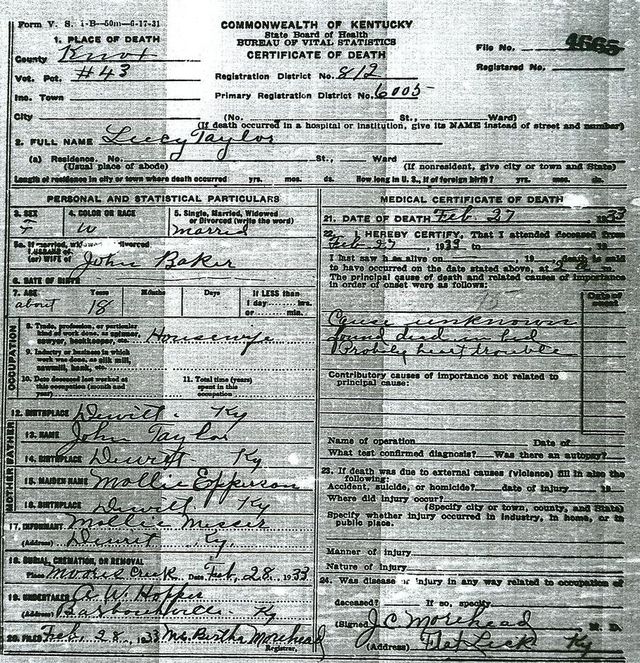 Form V. S. 1-B—50m—6-17-31
COMMONWEALTH OF KENTUCKY
State Board of Health
BUREAU OF VITAL STATISTICS
CERTIFICATE OF DEATH
File No. 4665
Registered No.
1. PLACE OF DEATH
County Knox
Vot. Pct. #43
Inc. Town
City
Registration District No. 812
Primary Registration District No. 6005
(No. St., Ward)
(If death occurred in a hospital or institution, give its NAME instead of street and number)
2. FULL NAME Lucy Taylor
(a) Residence. No. St., Ward
(Usual place of abode) (If nonresident, give city or town and State)
Length of residence in city or town where death occurred yrs. mos. ds. How long in U. S., if of foreign birth? yrs. mos. ds.
PERSONAL AND STATISTICAL PARTICULARS
3. SEX F
4. COLOR OR RACE W
5. Single, Married, Widowed
or Divorced (write the word)
Married
5a. If married, widowed divorced
HUSBAND of
(or) WIFE of John Baker
6. DATE OF BIRTH
7. AGE Years Months Days If LESS than
about 18 1 day hrs.
or min.
OCCUPATION
8. Trade, profession, or particular
kind of work done, as spinner,
sawyer, bookkeeper, etc. Housewife
9. Industry or business in which
work was done, as silk mill,
sawmill, bank, etc.
10. Date deceased last worked at
this occupation (month and
year)
11. Total time (years)
spent in this
occupation
12. BIRTHPLACE Dewitt. Ky
FATHER
13. NAME John Taylor
14. BIRTHPLACE Dewitt Ky
MOTHER
15. MAIDEN NAME Mollie Epperson
16. BIRTHPLACE Dewitt Ky
17. INFORMANT Mollie Messer
(Address) Dewitt Ky.
18. BURIAL, CREMATION, OR REMOVAL
Place Moores Creek Date Feb, 28 1933
19. UNDERTAKER A. W. Hopper
(Address) Barbourville. Ky
20. FILED Feb, 28, 1933 Mrs Bertha Morehead
Registrar.
MEDICAL CERTIFICATE OF DEATH
21. DATE OF DEATH Feb 27 1933
22. I HEREBY CERTIFY, That I attended deceased from
Feb 27, 1933 to
I last saw h alive on , 19 death is said
to have occurred on the date stated above, at 2 a m.
The principal cause of death and related causes of importance
in order of onset were as follows:
Date of
onset
Cause unknown
found dead in bed
Probly heart trouble
Contributory causes of importance not related to
principal cause:
Name of operation Date of
What test confirmed diagnosis? Was there an autopsy?
23. If death was due to external causes (violence) fill in also the
following:
Accident, suicide, or homicide? date of injury 19
Where did injury occur?
(Specify city or town, county, and State)
Specify whether injury occurred in industry, in home, or in
public place.
Manner of injury
Nature of injury
24. Was disease or injury in any way related to occupation of
deceased? If so, specify
(Signed) J. C. Morehead M. D.
(Address) Flat Lick Ky